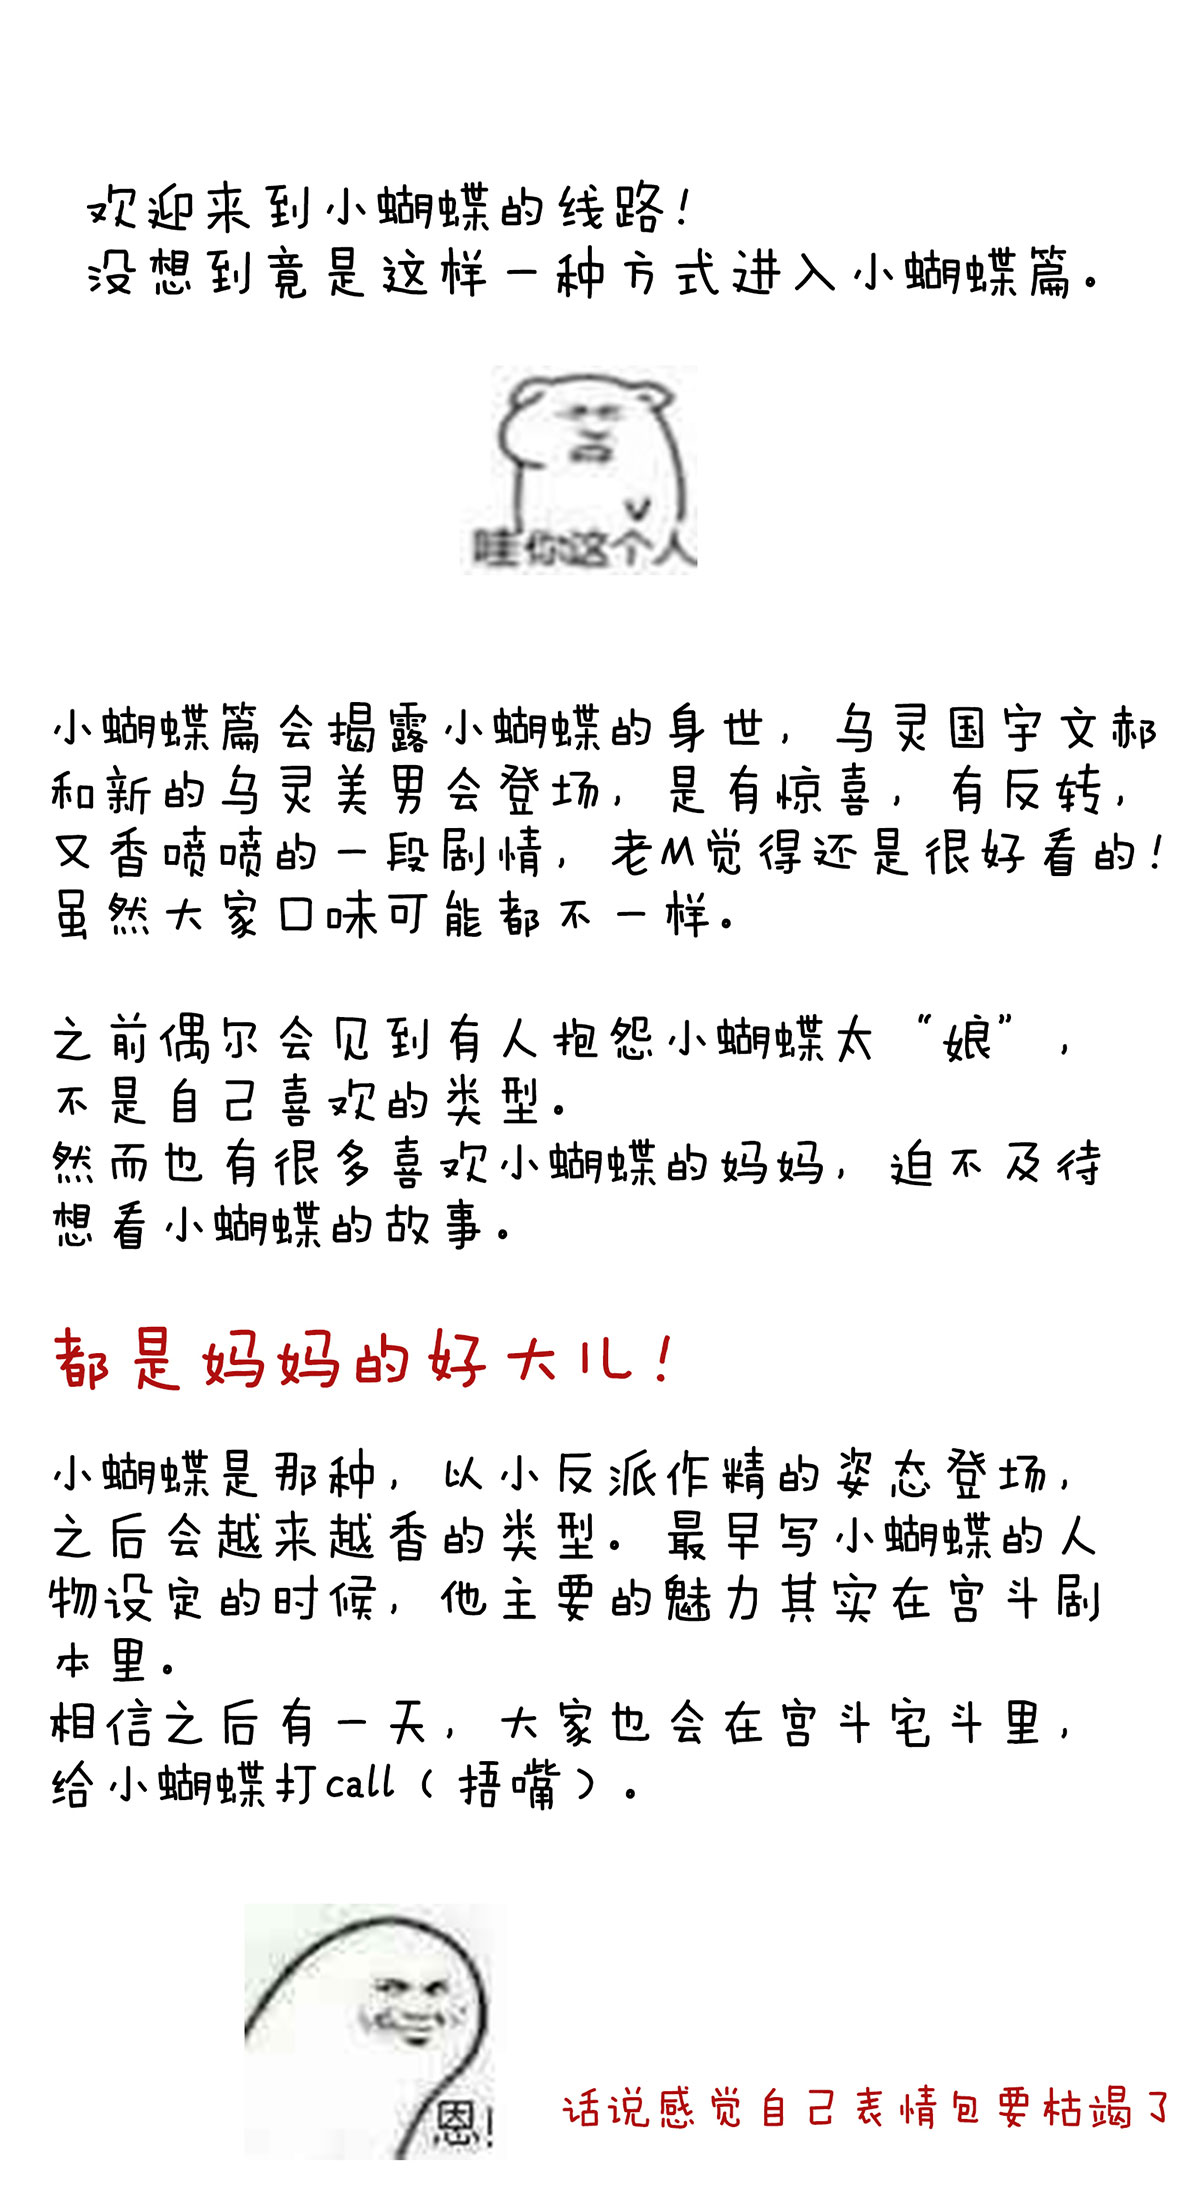 欢迎来到小蝴蝶的线路！
没想到竟是这样一种方式进入小蝴蝶篇。
哇你这个人
小蝴蝶篇会揭露小蝴蝶的身世，乌灵国宇文郝
和新的乌灵美男会登场，是有惊喜，有反转，
又香喷喷的一段剧情，老M觉得还是很好看的！
虽然大家口味可能都不一样。
之前偶尔会见到有人抱怨小蝴蝶太“娘”，
不是自己喜欢的类型。
然而也有很多喜欢小蝴蝶的妈妈，迫不及待
想看小蝴蝶的故事。
都是妈妈的好大儿！
小蝴蝶是那种，以小反派作精的姿态登场，
之后会越来越香的类型。最早写小蝴蝶的人
物设定的时候，他主要的魅力其实在宫斗剧
本里。
相信之后有一天，大家也会在宫斗宅斗里，
给小蝴蝶打call（捂嘴）。
恩！
话说感觉自己表情包要枯竭了